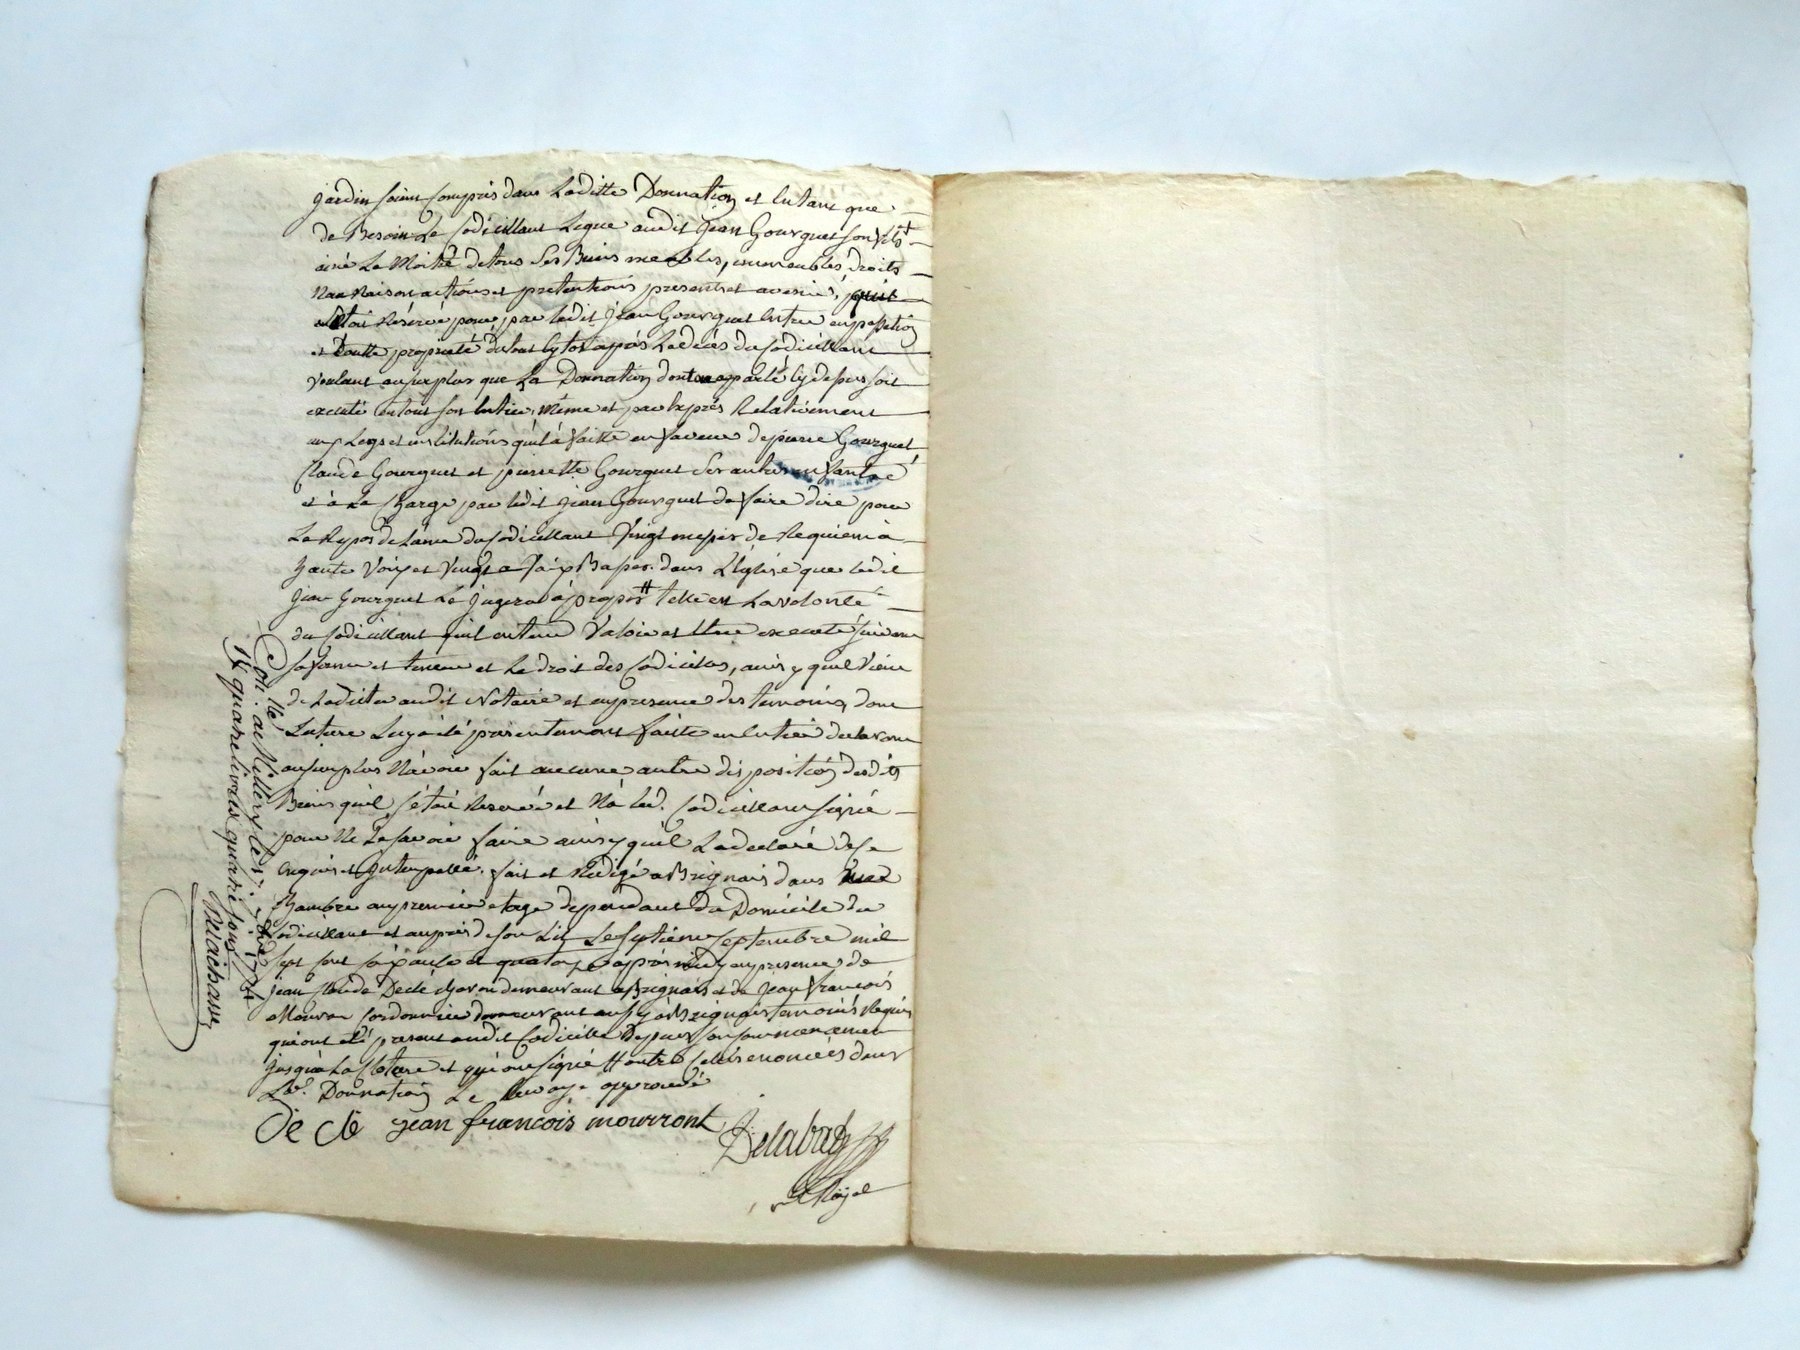 jardin soient Compris dans Laditte Donnation et Entant que
de Besoin Le Codicillant Legue audit jean Gourguet son fils
ainé La Moitié detous Ses Biens meubles, immeubles, droits
Nom Raison actions et pretentions presents et avenirs,
setoit Réservé pour par ledit jean Gourguet Entrer en possession
et Toutte proprieté du tout sytot après Le décès du Codicillant
voulant ausurplus que La Donnation dont a parlé cy dessus soit
executé entout son Entier, même et par Exprès Relativement
aux Legs et institutions quil à faitte en faveur de pierre Gourguet
Claude Gourguet et pierrette Gourguet Ses autres enfants
et à La Charge par ledit jean Gourguet de faire dire pour
Le Repos de Lame du Codicillant Vingt messes de Requiem à
haute Voix et Vingt a Voix Basses. dans L'Eglise que ledit
jean Gourguet Le jugera à propos # telle est La volonté
du Codicillant quil entend Valoir et Etre executé suivant
sa forme et teneur et Le droit des Codiciles, ainsy quil Vient
de Ledicter audit Notaire et en presence des temoins, dont
Lecture Luy a été presentement faitte en Entier declarant
ausurplus Navoir fait aucune autre disposition desdits
Biens quil s'étoit Reservé et Na led. Codicillant signé
pour Ne Le savoir faire ainsy quil La declaré de ce
Enquis et Interpellé. fait et Redigé a Brignais dans
Chambre au premier etage dependant du Domicile du
Codicillant et auprès de son Lit Le septieme septembre mil
sept cent soixante et quatorze après midy en presence de
jean Claude Declé Charon demeurant a Brignais et de jean francois
Mouron Cordonnier demeurant aussy a Brignais temoins Requis
qui ont été presents audit Codicille Depuis son Commencement
jusqu'a La Cloture et qui ont signé # outre Celles enoncées dans
Lad. Donnation Le Renvoy approuvé
De Clé jean francois mourront
Delabath
Con. lle à Millery le 7bre 1774
14 quatre livres quatre sous